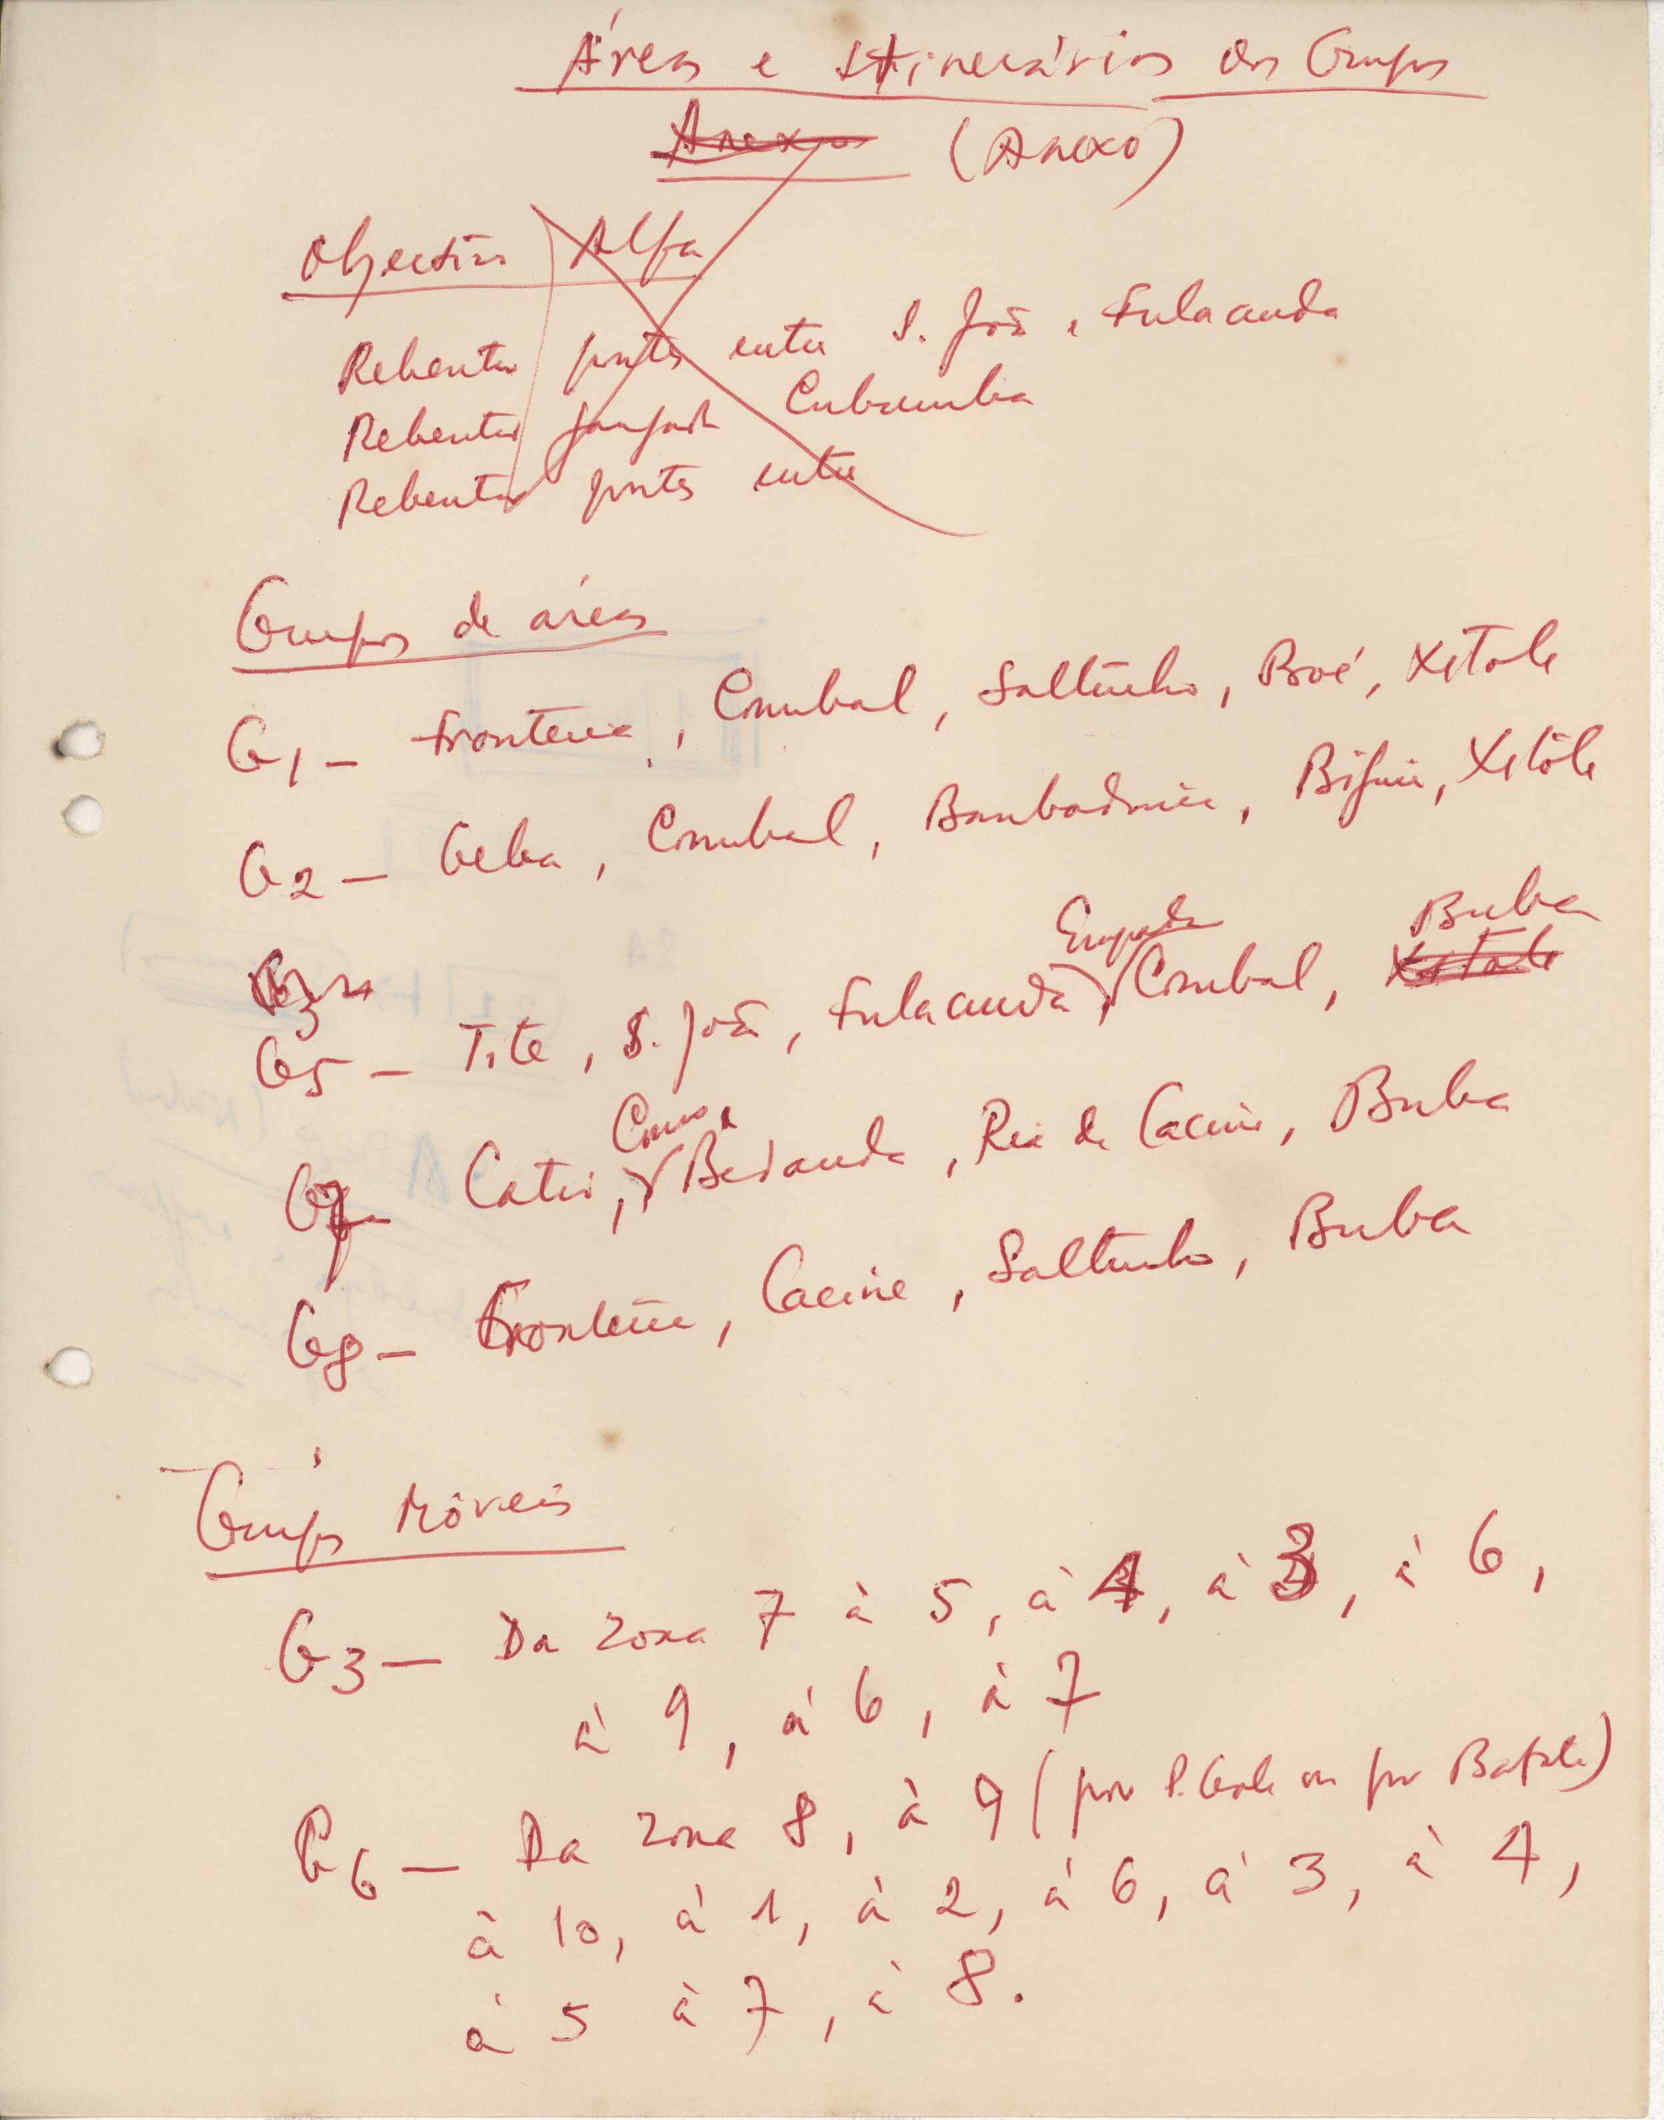 Áreas e Itinerários dos Grupos
Anexos (Anexo)
Objectivos Alfa
Rebentar pontes entre S. João e Fulacunda
Rebentar jangada Cubumba
Rebentar pontes entre
Grupos de áreas
G1 — Fronteira, Corubal, Saltinho, Boé, Xitole
G2 — Geba, Corubal, Bambadinca, Xitole
G3 —
Empada Buba
G5 — Tite, S. João, Fulacunda, Corubal, Xitole
Como e
G7 — Catió, Bedanda, Rio de Cacine, Buba
G8 — Fronteira, Cacine, Saltinho, Buba
Grupos Móveis
G3 — Da zona 7 à 5, à 4, à 3, à 6,
à 9, à 6, à 7
G6 — Da zona 8, à 9 (por ou por Bafatá)
à 10, à 1, à 2, à 6, à 3, à 4,
à 5 à 7, à 8.